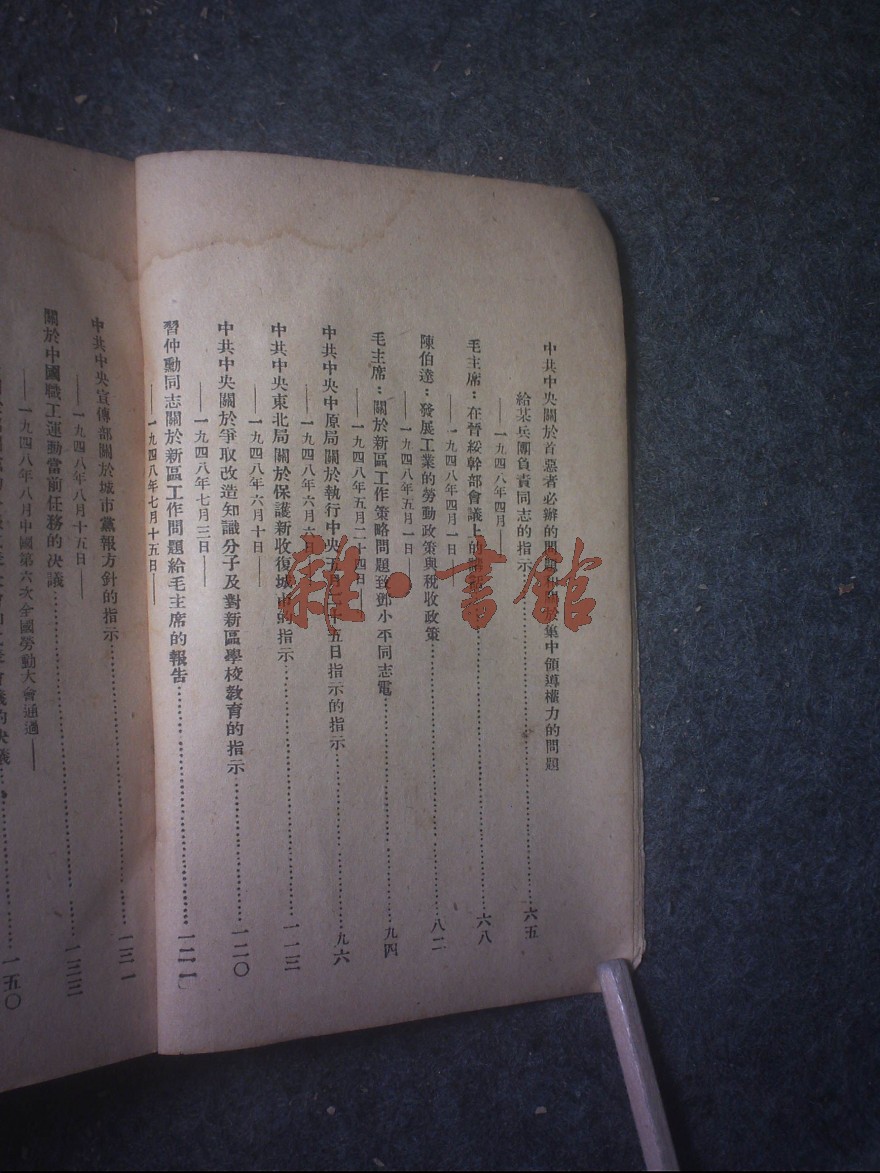 中共中央關於首惡者必辦的問題和關於集中領導權力的問題
給某兵團負責同志的指示……六五
——一九四八年四月——
毛主席：在晉綏幹部會議上的講話……六八
——一九四八年四月一日——
陳伯達：發展工業的勞動政策與稅收政策……八二
——一九四八年五月一日——
毛主席：關於新區工作策略問題致鄧小平同志電……九四
——一九四八年五月二十四日——
中共中央中原局關於執行中央五月二十五日指示的指示……九六
——一九四八年六月六日——
中共中央東北局關於保護新收復城市的指示……一一三
——一九四八年六月十日——
中共中央關於爭取改造知識分子及對新區學校教育的指示……一二〇
——一九四八年七月三日——
習仲勳同志關於新區工作問題給毛主席的報告……
——一九四八年七月十五日——
中共中央宣傳部關於城市黨報方針的指示……一三一
——一九四八年八月十五日——
關於中國職工運動當前任務的決議……一三三
——一九四八年八月中國第六次全國勞動大會通過——
議的決議……一五〇
雜·書館